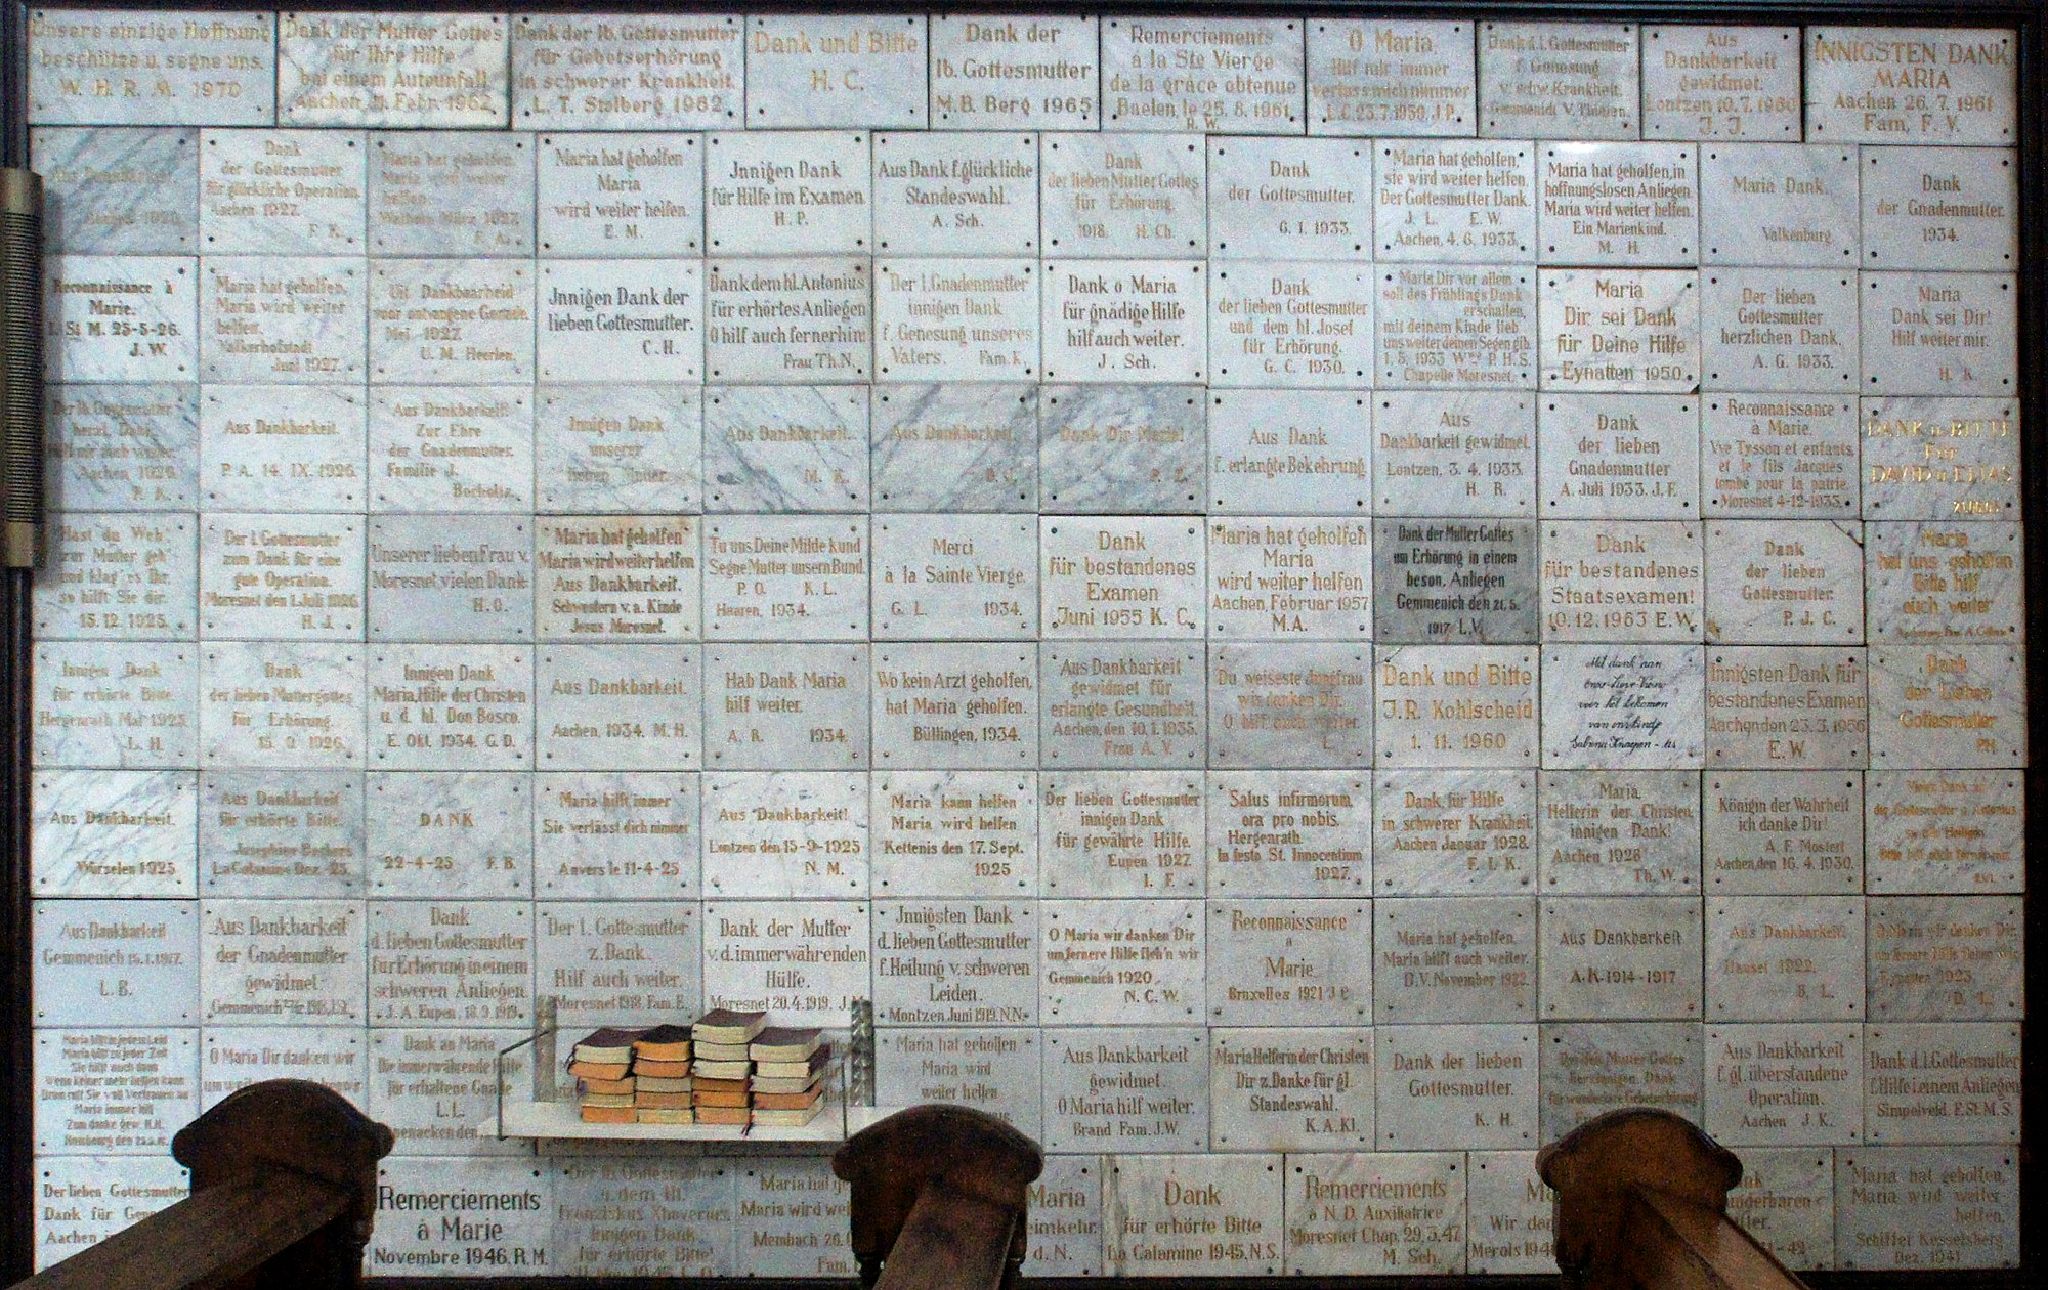 Unsere einzige Hoffnung
beschütze u. segne uns.
W. H. R. M. 1970
Dank der Mutter Gottes
für Ihre Hilfe
bei einem Autounfall
Aachen, Febr. 1962
Dank der lb. Gottesmutter
für Gebetserhörung
in schwerer Krankheit.
L. T. Stolberg 1962.
Dank und Bitte
H. C.
Dank der
lb. Gottesmutter
M.B. Berg 1965
Remerciements
à la Ste Vierge
de la grâce obtenue
Baelen, le 25. 8. 1961.
R. W.
O Maria,
Hilf mir immer
verlass mich nimmer
L.C. 23.7.1959, J.P.
Dank d. l. Gottesmutter
f. Genesung
v. schw. Krankheit.
Gemmenich V. Thienen.
Aus
Dankbarkeit
gewidmet.
Lontzen 10.7.1960
J. J.
INNIGSTEN DANK
MARIA
Aachen 26. 7. 1961
Fam. F. V.
Aus Dankbarkeit
1926.
Dank
der Gottesmutter
für glückliche Operation.
Aachen 1927.
F. K.
Maria hat geholfen.
Maria wird weiter
helfen.
März 1927.
F. A.
Maria hat geholfen
Maria
wird weiter helfen.
E. M.
Jnnigen Dank
für Hilfe im Examen
H. P.
Aus Dank f. glückliche
Standeswahl.
A. Sch.
Dank
der lieben Mutter Gottes
für Erhörung.
1918. H. Ch.
Dank
der Gottesmutter.
6. 1. 1933.
Maria hat geholfen,
sie wird weiter helfen.
Der Gottesmutter Dank.
J. L. E. W.
Aachen, 4. 6. 1933.
Maria hat geholfen, in
hoffnungslosen Anliegen
Maria wird weiter helfen.
Ein Marienkind.
M. H.
Maria Dank.
Valkenburg
Dank
der Gnadenmutter.
1934.
Reconnaissance à
Marie.
L. St M. 25-5-26.
J. W.
Maria hat geholfen.
Maria wird weiter
helfen.
Valkerhofstadt
Juni 1927.
Uit Dankbaarheid
voor ontvangene Genade.
Mei 1927.
U. M. Heerlen.
Jnnigen Dank der
lieben Gottesmutter.
C. H.
Dank dem hl. Antonius
für erhörtes Anliegen
O hilf auch fernerhin
Frau Th. N.
Der l. Gnadenmutter
innigen Dank
f. Genesung unseres
Vaters. Fam. K.
Dank o Maria
für gnädige Hilfe
hilf auch weiter.
J. Sch.
Dank
der lieben Gottesmutter
und dem hl. Josef
für Erhörung.
G. C. 1930.
Maria Dir vor allem
soll des Frühlings Dank
erschallen,
mit deinem Kinde lieb
uns weiter deinen Segen gib.
1. 5. 1933 Wwe P. H. S.
Chapelle Moresnet.
Maria
Dir sei Dank
für Deine Hilfe
Eynatten 1950.
Der lieben
Gottesmutter
herzlichen Dank.
A. G. 1933.
Maria
Dank sei Dir!
Hilf weiter mir.
H. K.
Der lb. Gottesmutter
herzl. Dank.
Hilf mir auch weiter.
Aachen, 1926.
P. K.
Aus Dankbarkeit.
P. A. 14. IX. 1926.
Aus Dankbarkeit
Zur Ehre
der Gnadenmutter.
Familie J.
Bocholtz.
Innigen Dank
unserer
lieben Mutter.
Aus Dankbarkeit.
M. K.
Aus Dankbarkeit.
Dank Dir Maria!
P. L.
Aus Dank
f. erlangte Bekehrung.
Aus
Dankbarkeit gewidmet.
Lontzen, 3. 4. 1933.
H. R.
Dank
der lieben
Gnadenmutter
A. Juli 1933. J. F.
Reconnaissance
à Marie.
Vve Tysson et enfants
et le fils Jacques
tombé pour la patrie.
Moresnet 4-12-1933.
DANK u. BITTE
Für
DAVID u. ELIAS
Hast du Weh,
zur Mutter geh'
und klag' es Ihr,
so hilft Sie dir.
15. 12. 1925.
Der l. Gottesmutter
zum Dank für eine
gute Operation.
Moresnet den 1. Juli 1926.
H. J.
Unserer lieben Frau v.
Moresnet vielen Dank
H. O.
Maria hat geholfen
Maria wird weiter helfen
Aus Dankbarkeit.
Schwestern v. a. Kinde
Jesus Moresnet.
Tu uns Deine Milde kund
Segne Mutter unsern Bund.
P. O. K. L.
Haaren, 1934.
Merci
à la Sainte Vierge.
G. L. 1934.
Dank
für bestandenes
Examen
Juni 1955 K. C.
Maria hat geholfen
Maria
wird weiter helfen
Aachen, Februar 1957
M.A.
Dank der Mutter Gottes
um Erhörung in einem
beson. Anliegen
Gemmenich den 21. 5.
1917. L. V.
Dank
für bestandenes
Staatsexamen!
10. 12. 1963 E. W.
Dank
der lieben
Gottesmutter.
P. J. C.
Maria
hat uns geholfen
Bitte hilf
auch weiter
Innigen Dank
für erhörte Bitte.
Hergenrath Mai 1925.
L. H.
Dank
der lieben Muttergottes
für Erhörung.
15. 9. 1926.
Innigen Dank
Maria, Hilfe der Christen
u. d. hl. Don Bosco.
E. Okt. 1934. G. D.
Aus Dankbarkeit.
Aachen, 1934. M. H.
Hab Dank Maria
hilf weiter.
A. R. 1934.
Wo kein Arzt geholfen,
hat Maria geholfen.
Büllingen, 1934.
Aus Dankbarkeit
gewidmet für
erlangte Gesundheit
Aachen, den 10. 1. 1935.
Frau A. V.
Du weiseste Jungfrau
wir danken Dir.
O hilf auch weiter.
L.
Dank und Bitte
J. R. Kohlscheid
1. 11. 1960
Met dank aan
onze Lieve Vrouw
voor het bekomen
van ons kindje
Sabrina Knapen
Innigsten Dank für
bestandenes Examen
Aachen den 23. 3. 1956
E. W.
Dank
der Lieben
Gottesmutter
PH
Aus Dankbarkeit.
Würselen 1925
Aus Dankbarkeit
für erhörte Bitte.
Josephine Beckers
La Calamine Dez. 25.
DANK
22-4-25 F. B.
Maria hilft immer
Sie verlässt dich nimmer
Anvers le 11-4-25
Aus Dankbarkeit!
Lontzen den 15-9-1925
N. M.
Maria kann helfen
Maria wird helfen
Kettenis den 17. Sept.
1925
Der lieben Gottesmutter
innigen Dank
für gewährte Hilfe.
Eupen 1927.
I. F.
Salus infirmorum
ora pro nobis.
Hergenrath.
In festo St. Innocentium
1927.
Dank für Hilfe
in schwerer Krankheit.
Aachen Januar 1928.
F. I. K.
Maria
Helferin der Christen,
innigen Dank!
Aachen 1928
Th. W.
Königin der Wahrheit
ich danke Dir!
A. F. Mostert
Aachen, den 16. 4. 1930.
Vielen Dank an
die Gottesmutter u. Antonius
Bitte hilf auch fernerhin.
Aus Dankbarkeit
Gemmenich 1917.
L. B.
Aus Dankbarkeit
der Gnadenmutter
gewidmet.
Gemmenich
Dank
d. lieben Gottesmutter
für Erhörung in einem
schweren Anliegen.
J. A. Eupen, 18. 9. 1919.
Der l. Gottesmutter
z. Dank.
Hilf auch weiter.
Moresnet 1918. Fam. E.
Dank der Mutter
v. d. immerwährenden
Hülfe.
Moresnet 20. 4. 1919. J. M.
Jnnigsten Dank
d. lieben Gottesmutter
f. Heilung v. schweren
Leiden.
Montzen Juni 1919. N.N.
O Maria wir danken Dir
um fernere Hilfe fleh'n wir
Gemmenich 1920.
N. C. W.
Reconnaissance
a
Marie
Bruxelles 1921 J C
Maria hat geholfen,
Maria hilft auch weiter.
D. V. November 1922.
Aus Dankbarkeit
A. K. 1914 - 1917
Aus Dankbarkeit
Hauset 1922.
B. L.
O Maria wir danken Dir,
um fernere Hilfe flehen wir
Eynatten 1923.
D. L.
Maria hilft in jedem Leid
Maria hilft zu jeder Zeit
Sie hilft auch dann
wenn keiner mehr helfen kann
Drum ruft Sie voll Vertrauen an
Maria immer hilf
Zum danke gew. H.H.
O Maria Dir danken wir
Dank an Maria
Die immerwährende Hilfe
für erhaltene Gnade
L. L.
Maria hat geholfen
Maria wird
weiter helfen
Aus Dankbarkeit
gewidmet.
O Maria hilf weiter.
Brand Fam. J.W.
Maria Helferin der Christen
Dir z. Danke für gl.
Standeswahl.
K. A. Kl.
Dank der lieben
Gottesmutter.
K. H.
Mutter Gottes
Dank
für wunderbare Gebetserhörung
Aus Dankbarkeit
f. gl. überstandene
Operation.
Aachen J. K.
Dank d. l. Gottesmutter
f. Hilfe i. einem Anliegen
Simpelveld. E. St. M. S.
Der lieben Gottesmutter
Dank für
Aachen
Remerciements
à Marie
Novembre 1946. R. M.
Der lb. Gottesmutter
u. dem hl.
Franziskus Xaverius
Innigen Dank
für erhörte Bitte!
Maria hat
Maria wird
Membach 26.
Fam.
Maria
d. N.
Dank
für erhörte Bitte
La Calamine 1945. N.S.
Remerciements
à N. D. Auxiliatrice
Moresnet Chap. 29. 3. 47
M. Sch.
Wir
Merols
Maria hat geholfen,
Maria wird weiter
helfen.
Schiffet Kesselsberg
Dez. 1941